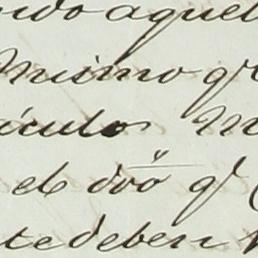 ndo aquel
mismo q
iculos
el dro q
te deben